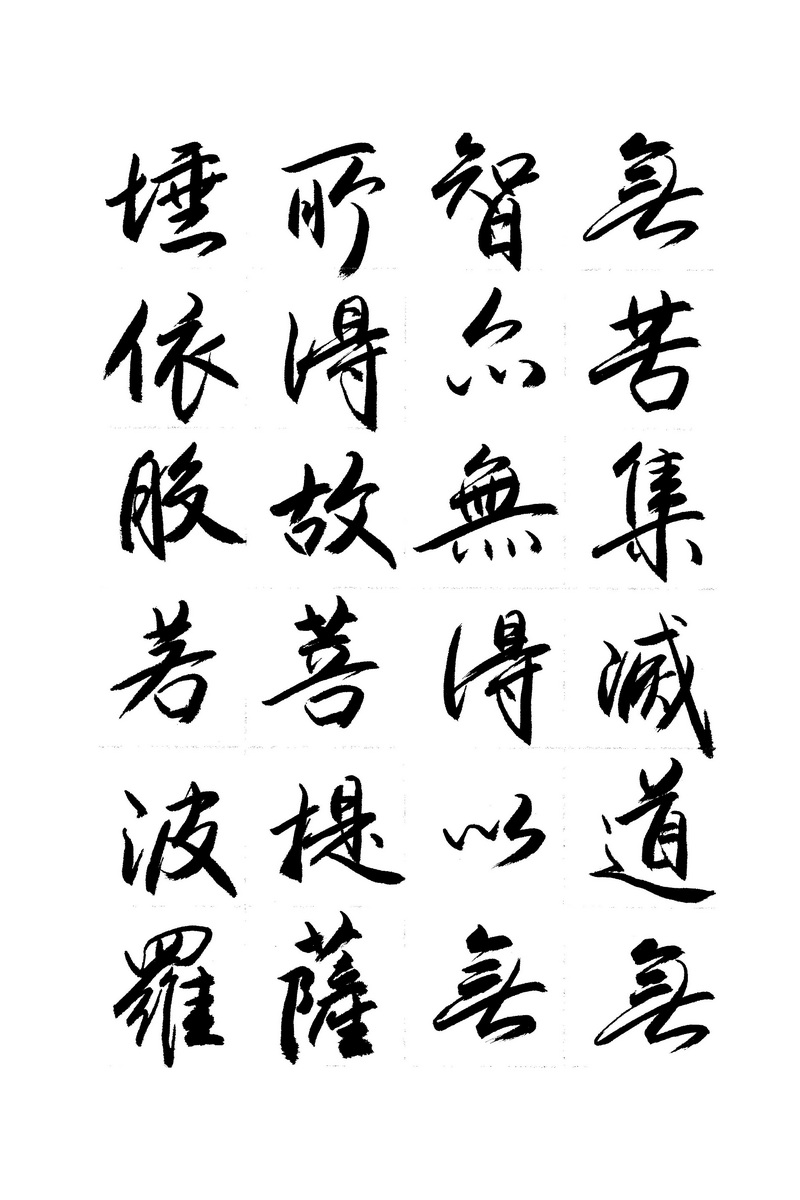 無苦集滅道無
智亦無得以無
所得故菩提薩
埵依般若波羅